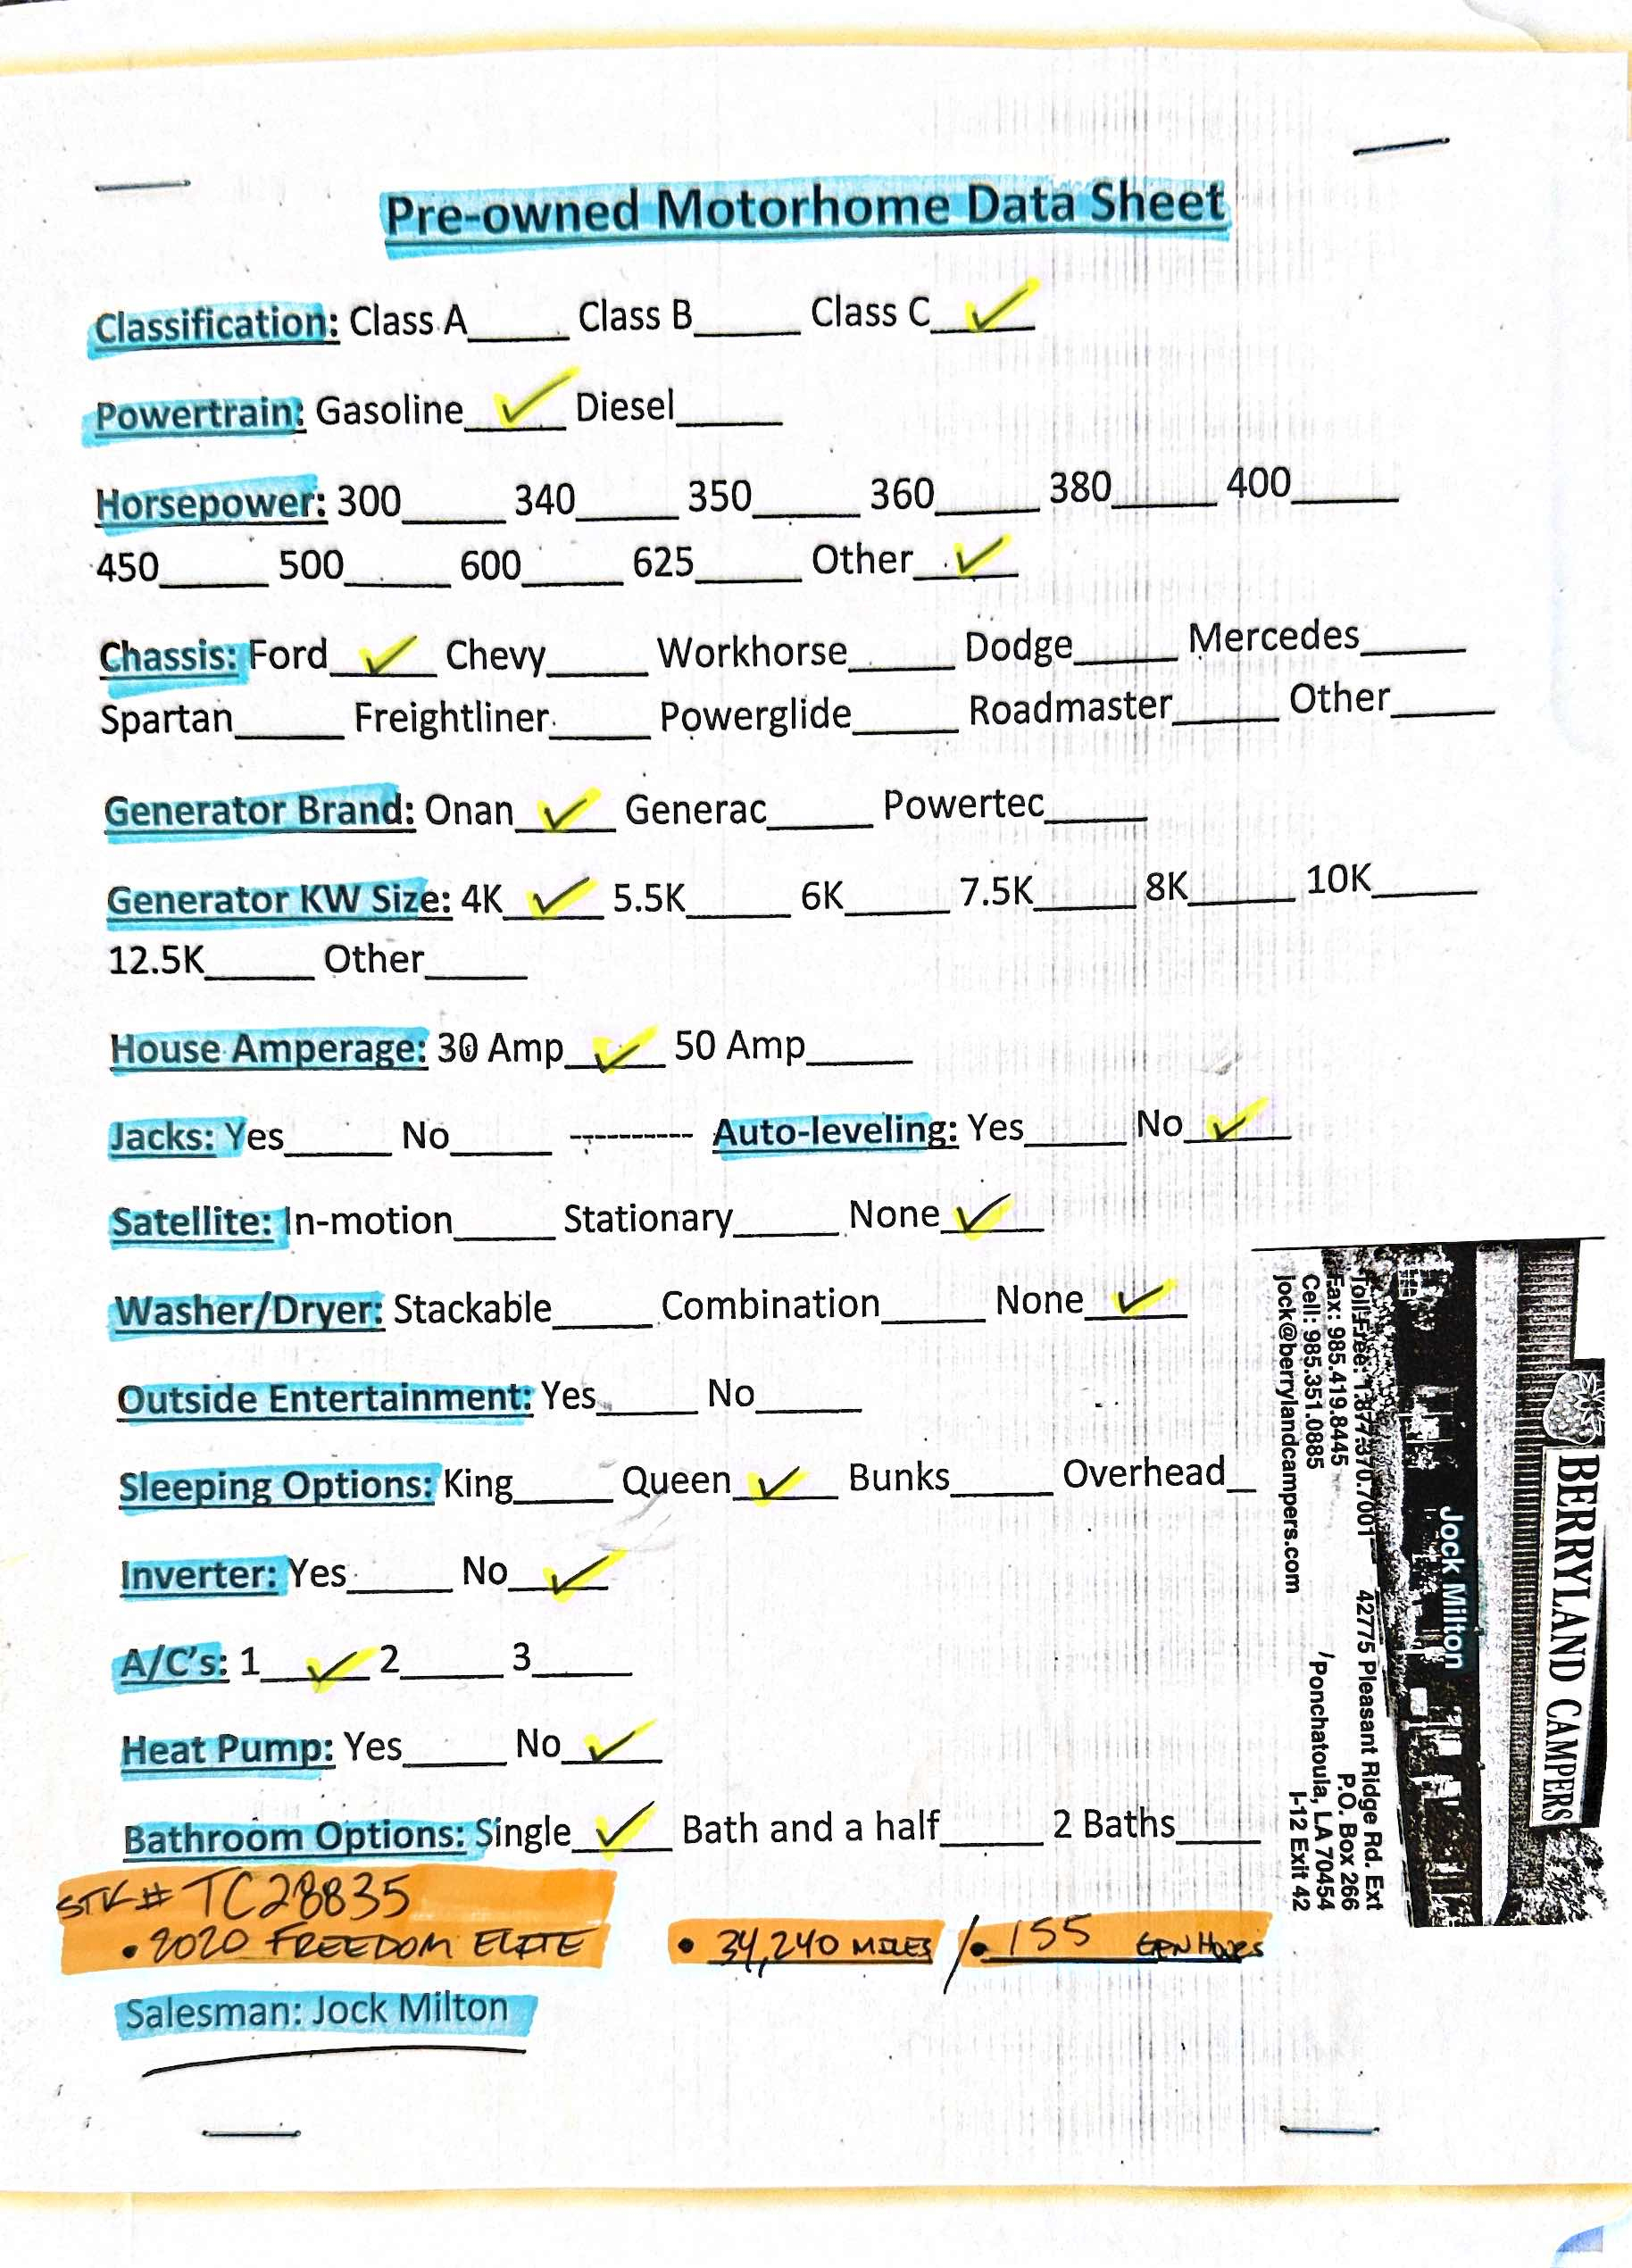 Pre-owned Motorhome Data Sheet
Classification: Class A_____ Class B_____ Class C__✓__
Powertrain: Gasoline__✓__ Diesel_____
Horsepower: 300_____ 340_____ 350_____ 360_____ 380_____ 400_____
450_____ 500_____ 600_____ 625_____ Other__✓__
Chassis: Ford__✓__ Chevy_____ Workhorse_____ Dodge_____ Mercedes_____
Spartan_____ Freightliner_____ Powerglide_____ Roadmaster_____ Other_____
Generator Brand: Onan__✓__ Generac_____ Powertec_____
Generator KW Size: 4K__✓__ 5.5K_____ 6K_____ 7.5K_____ 8K_____ 10K_____
12.5K_____ Other_____
House Amperage: 30 Amp__✓__ 50 Amp_____
Jacks: Yes_____ No_____ ---------- Auto-leveling: Yes_____ No__✓__
Satellite: In-motion_____ Stationary_____ None__✓__
Washer/Dryer: Stackable_____ Combination_____ None__✓__
Outside Entertainment: Yes_____ No_____
Sleeping Options: King_____ Queen__✓__ Bunks_____ Overhead_
Inverter: Yes_____ No__✓__
A/C's: 1__✓__ 2_____ 3_____
Heat Pump: Yes_____ No__✓__
Bathroom Options: Single__✓__ Bath and a half_____ 2 Baths____
STK# TC28835
• 2020 FREEDOM ELITE • 34,240 MILES / • 155 GEN HOURS
Salesman: Jock Milton
BERRYLAND CAMPERS
Jock Milton
Toll-Free: 1.877.370.7001 42775 Pleasant Ridge Rd. Ext
Fax: 985.419.8445 P.O. Box 266
Cell: 985.351.0885 Ponchatoula, LA 70454
jock@berrylandcampers.com I-12 Exit 42